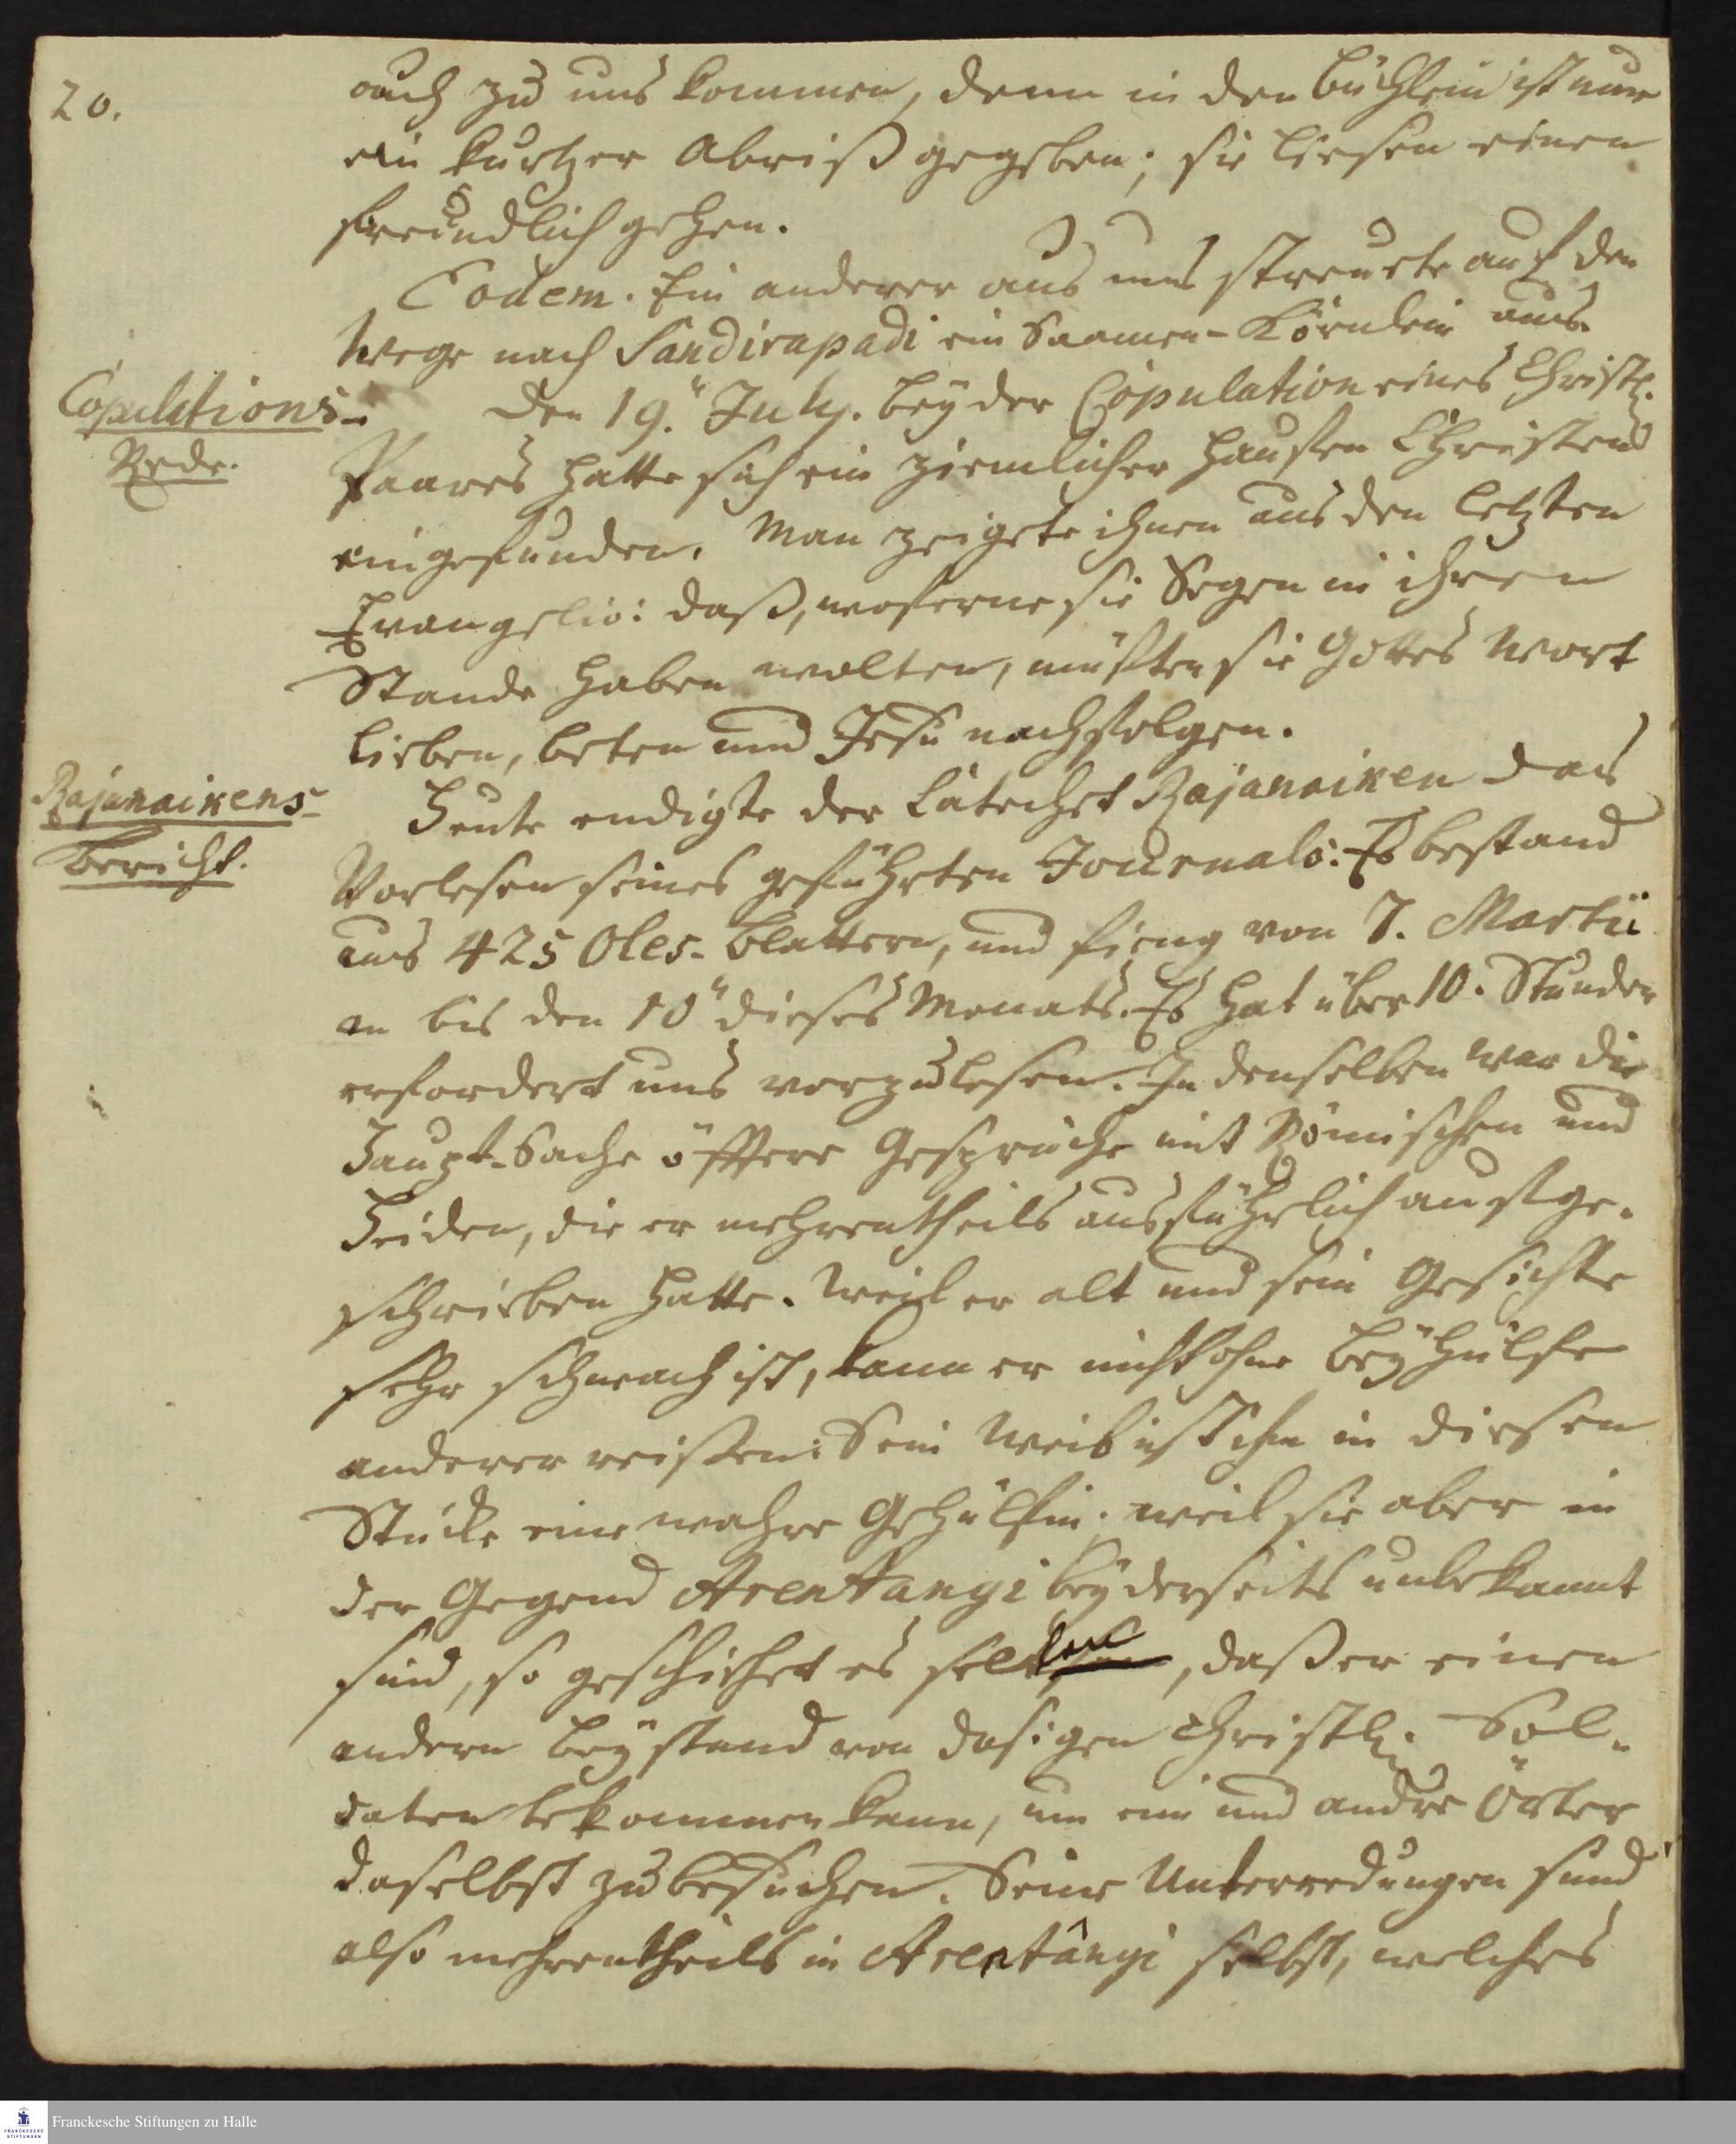 20.
auch zu uns kommen, denn in den Büchlein ist nur
ein kurtzer Abriß gegeben; sie liesen einen
freundlich gehen.
Eodem. Ein anderer aus uns streuete auf den
Wege nach Sandirapadi ein Saamen-Körnlein aus.
Copulations-
Rede.
Den 19.ⁿ July. bey der Copulation eines Christl.
Paares hatte sich ein ziemlicher Hauffen Christen
eingefunden. Man zeigete ihnen aus den letzten
Evangelio: daß, woferne sie Segen in ihren
Stande haben wolten, müsten sie Gottes Wort
lieben, beten und Jesu nachfolgen.
Rajanaikens-
Bericht.
Heute endigte der Catechet Rajanaiken das
Vorlesen seines geführten Journals: Es bestand
aus 425 Oles-Blattern, und fieng von 7. Martii
an bis den 10ⁿ dieses Monats. Es hat über 10. Stunden
erfordert uns vorzulesen. In denselben war die
Haupt-Sache öfftere Gespräche mit Römischen und
Heiden, die er mehrentheils ausführlich aufge-
schrieben hatte. Weil er alt und sein Gesichte
sehr schwach ist, kann er nicht ohne Beyhülfe
anderer reisen: Sein Weib ist ihm in diesen
Stücke eine wahre Gehülfin; weil sie aber in
der Gegend Arentangi beyderseits unbekannt
sind, so geschiehet es selten, daß er einen
andern Beystand von dasigen Christl. Sol-
daten bekommen kann, um ein und andre Örter
daselbst zu besuchen. Seine Unterredungen sind
also mehrentheils in Arentângi selbst, welches
Franckesche Stiftungen zu Halle
FRANCKESCHE
STIFTUNGEN